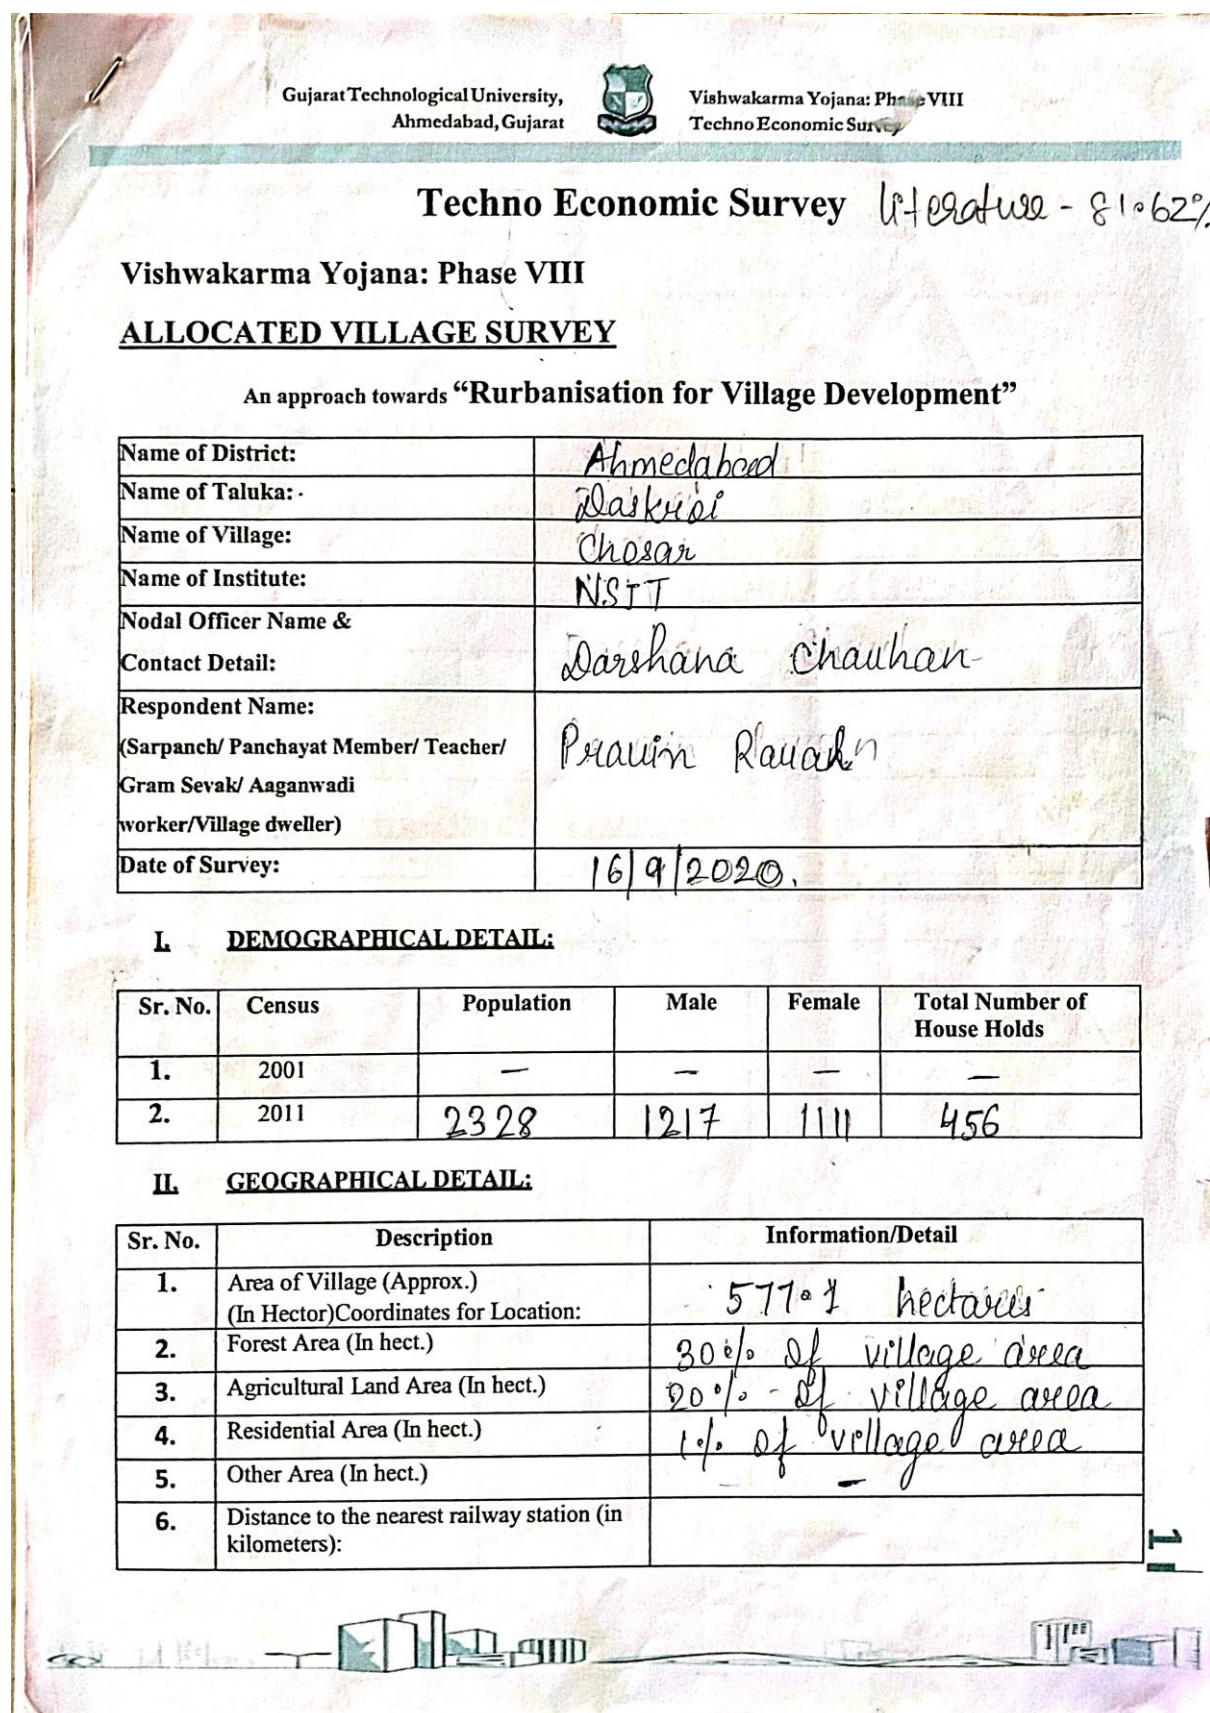 Gujarat Technological University,
Ahmedabad, Gujarat
Vishwakarma Yojana: Phase VIII
Techno Economic Survey
Techno Economic Survey literature - 81.62%
Vishwakarma Yojana: Phase VIII
ALLOCATED VILLAGE SURVEY
An approach towards “Rurbanisation for Village Development”
Name of District: Ahmedabad
Name of Taluka: Daskroi
Name of Village: Chosar
Name of Institute: NSIT
Nodal Officer Name &
Contact Detail: Darshana Chauhan
Respondent Name:
(Sarpanch/ Panchayat Member/ Teacher/ Pravin
Gram Sevak/ Aaganwadi
worker/Village dweller)
Date of Survey: 16/9/2020.
I. DEMOGRAPHICAL DETAIL:
Sr. No. Census Population Male Female Total Number of
House Holds
1. 2001 – – – –
2. 2011 2328 1217 1111 456
II. GEOGRAPHICAL DETAIL:
Sr. No. Description Information/Detail
1. Area of Village (Approx.)
(In Hector)Coordinates for Location: 577.1 hectares
2. Forest Area (In hect.) 30% of village area
3. Agricultural Land Area (In hect.) 20% - of village area
4. Residential Area (In hect.) 1% of village area
5. Other Area (In hect.) –
6. Distance to the nearest railway station (in
kilometers):